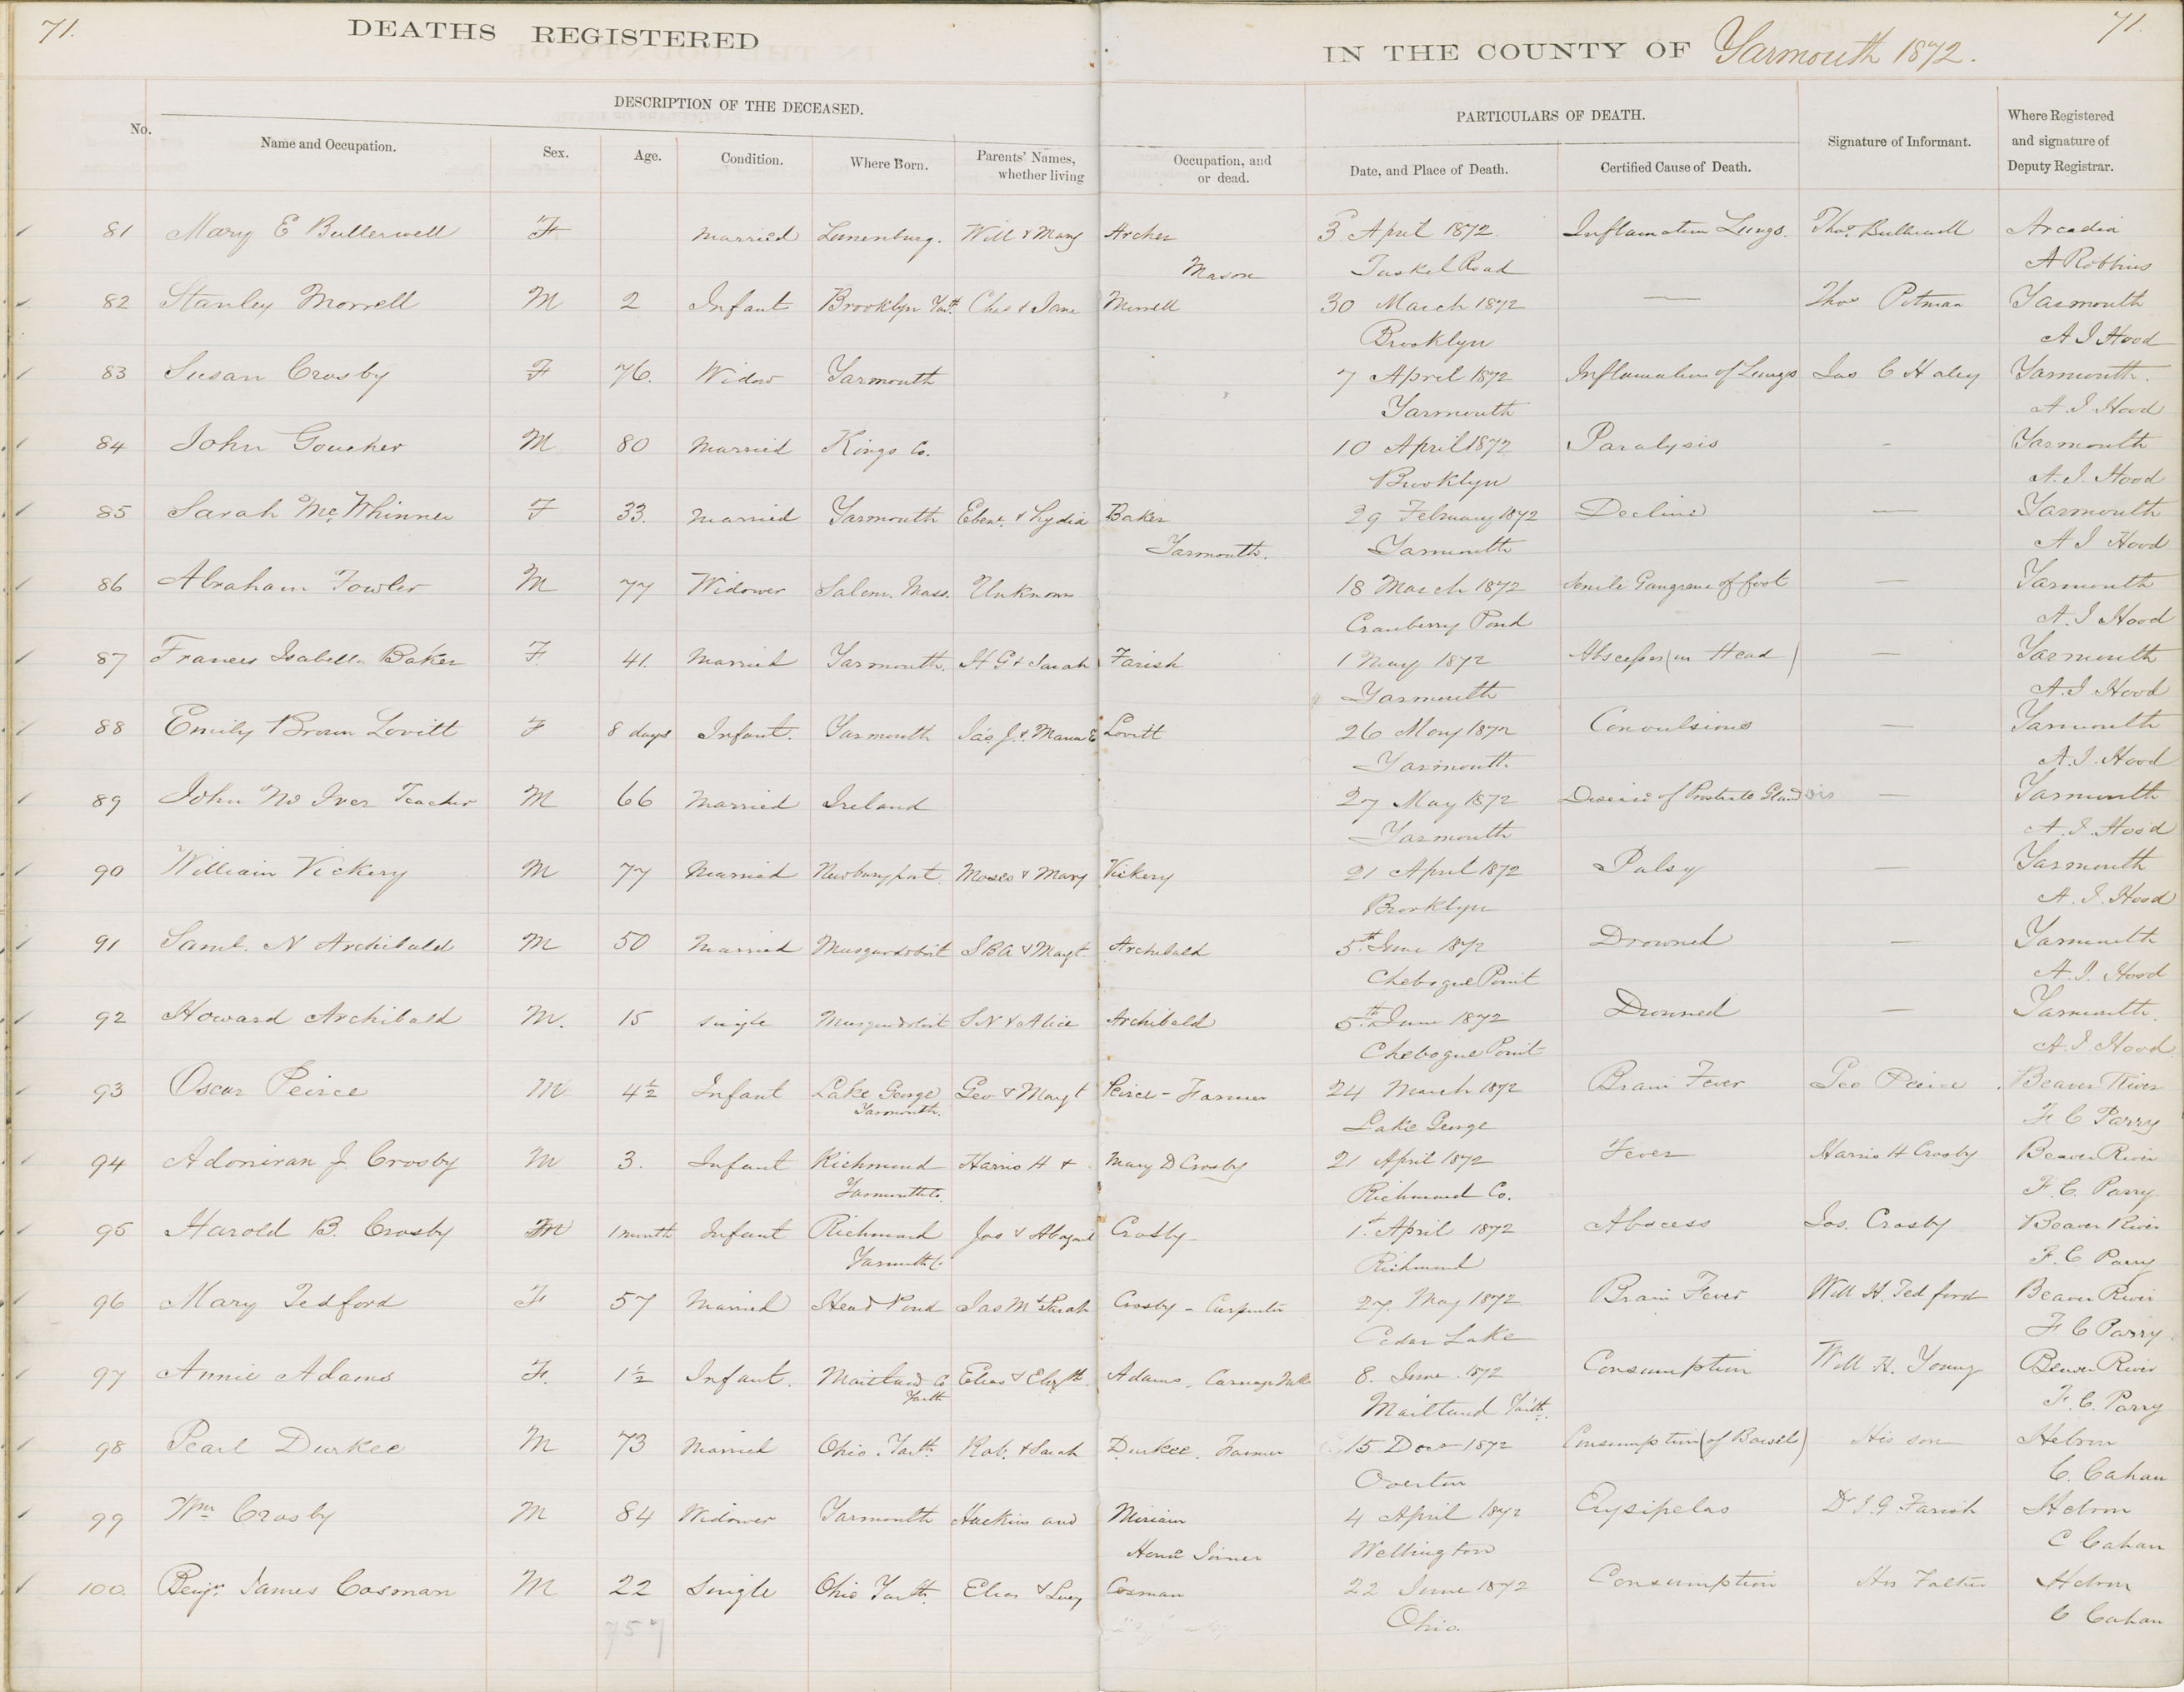 71. DEATHS REGISTERED IN THE COUNTY OF Yarmouth 1872. 71.
DESCRIPTION OF THE DECEASED. PARTICULARS OF DEATH.
No. Name and Occupation. Sex. Age. Condition. Where Born. Parents' Names, whether living Occupation, and or dead. Date, and Place of Death. Certified Cause of Death. Signature of Informant. Where Registered and signature of Deputy Registrar.
81 Mary E Butterwell F Married Lunenburg. Will & Mary Archer 3 April 1872 Inflamation Lungs. Thos Butterwell Arcadia
Mason Tusket Road A Robbins
82 Stanley Morrell M 2 Infant Brooklyn Yarth. Chas & Jane Morrell 30 March 1872 — Thos Pitman Yarmouth
Brooklyn A J Hood
83 Susan Crosby F 76. Widow Yarmouth 7 April 1872 Inflamation of Lungs Jas C Haley Yarmouth.
Yarmouth A. J. Hood
84 John Goucher M 80 Married Kings Co. 10 April 1872 Paralysis - Yarmouth
Brooklyn A. J. Hood
85 Sarah McWhinnie F 33. Married Yarmouth Ebenr. & Lydia Baker 29 February 1872 Decline — Yarmouth
Yarmouth. Yarmouth A J Hood
86 Abraham Fowler M 77 Widower Salem. Mass. Unknown 18 March 1872 Senile Gangrene of foot — Yarmouth
Cranberry Pond A. J Hood
87 Frances Isabella Baker F 41. Married Yarmouth. H G & Sarah Farish 1 May 1872 Abscesses (in Head) — Yarmouth
Yarmouth A. J Hood
88 Emily Brown Lovitt F 8 days Infant. Yarmouth Jas. J. & Maria E Lovitt 26 May 1872 Convulsions — Yarmouth
Yarmouth A. J. Hood
89 John Mc Iver Teacher M 66 Married Ireland 27 May 1872 Disease of Prostrate Gland — Yarmouth
Yarmouth A. J. Hood
90 William Vickery M 77 Married Newburyport Moses & Mary Vickery 21 April 1872 Palsy — Yarmouth
Brooklyn A. J. Hood
91 Saml. N Archibald M 50 Married Musquodoboit S B A & Magt Archibald 5th June 1872 Drowned — Yarmouth
Chebogue Point A. J. Hood
92 Howard Archibald M. 15 Single Musquodoboit S N & Alice Archibald 5th June 1872 Drowned — Yarmouth.
Chebogue Point A. J Hood
93 Oscar Peirce M 4½ Infant Lake George Geo & Magt Peirce - Farmer 24 March 1872 Brain Fever Geo Peirce Beaver River
Yarmouth. Lake George F C Parry
94 Adoniran J Crosby M 3. Infant Richmond Harris H & Mary D Crosby 21 April 1872 Fever Harris H Crosby Beaver River
Yarmouth Co. Richmond Co. F. C. Parry
95 Harold B. Crosby M 1 month Infant Richmond Jos & Abigail Crosby 1st April 1872 Abscess Jos. Crosby Beaver River
Yarmouth Co Richmond F. C Parry
96 Mary Tedford F 57 Married Head Pond Jas M & Sarah Crosby - Carpenter 27. May 1872 Brain Fever Will H. Tedford Beaver River
Cedar Lake F C Parry
97 Annie Adams F. 1½ Infant. Maitland Co Elias & Elizth Adams. Carriage 8. June. 1872 Consumption Will H. Young Beaver River
Yarth Maitland Yarth. F. C. Parry
98 Pearl Durkee M 73 Married Ohio. Yarth. Rob. & Sarah Durkee. Farmer 15 1872 Consumption (of Bowels) His son Hebron
Overton C. Cahan
99 Wm Crosby M 84 Widower Yarmouth and Miriam 4 April 1872 Erysipelas Dr J. G. Farish Hebron
House Joiner Wellington C Cahan
100. Benjn. James Cosman M 22 Single Ohio Yarth. Elias & Lucy Cosman 22 June 1872 Consumption His Father Hebron
757 Ohio. C Cahan